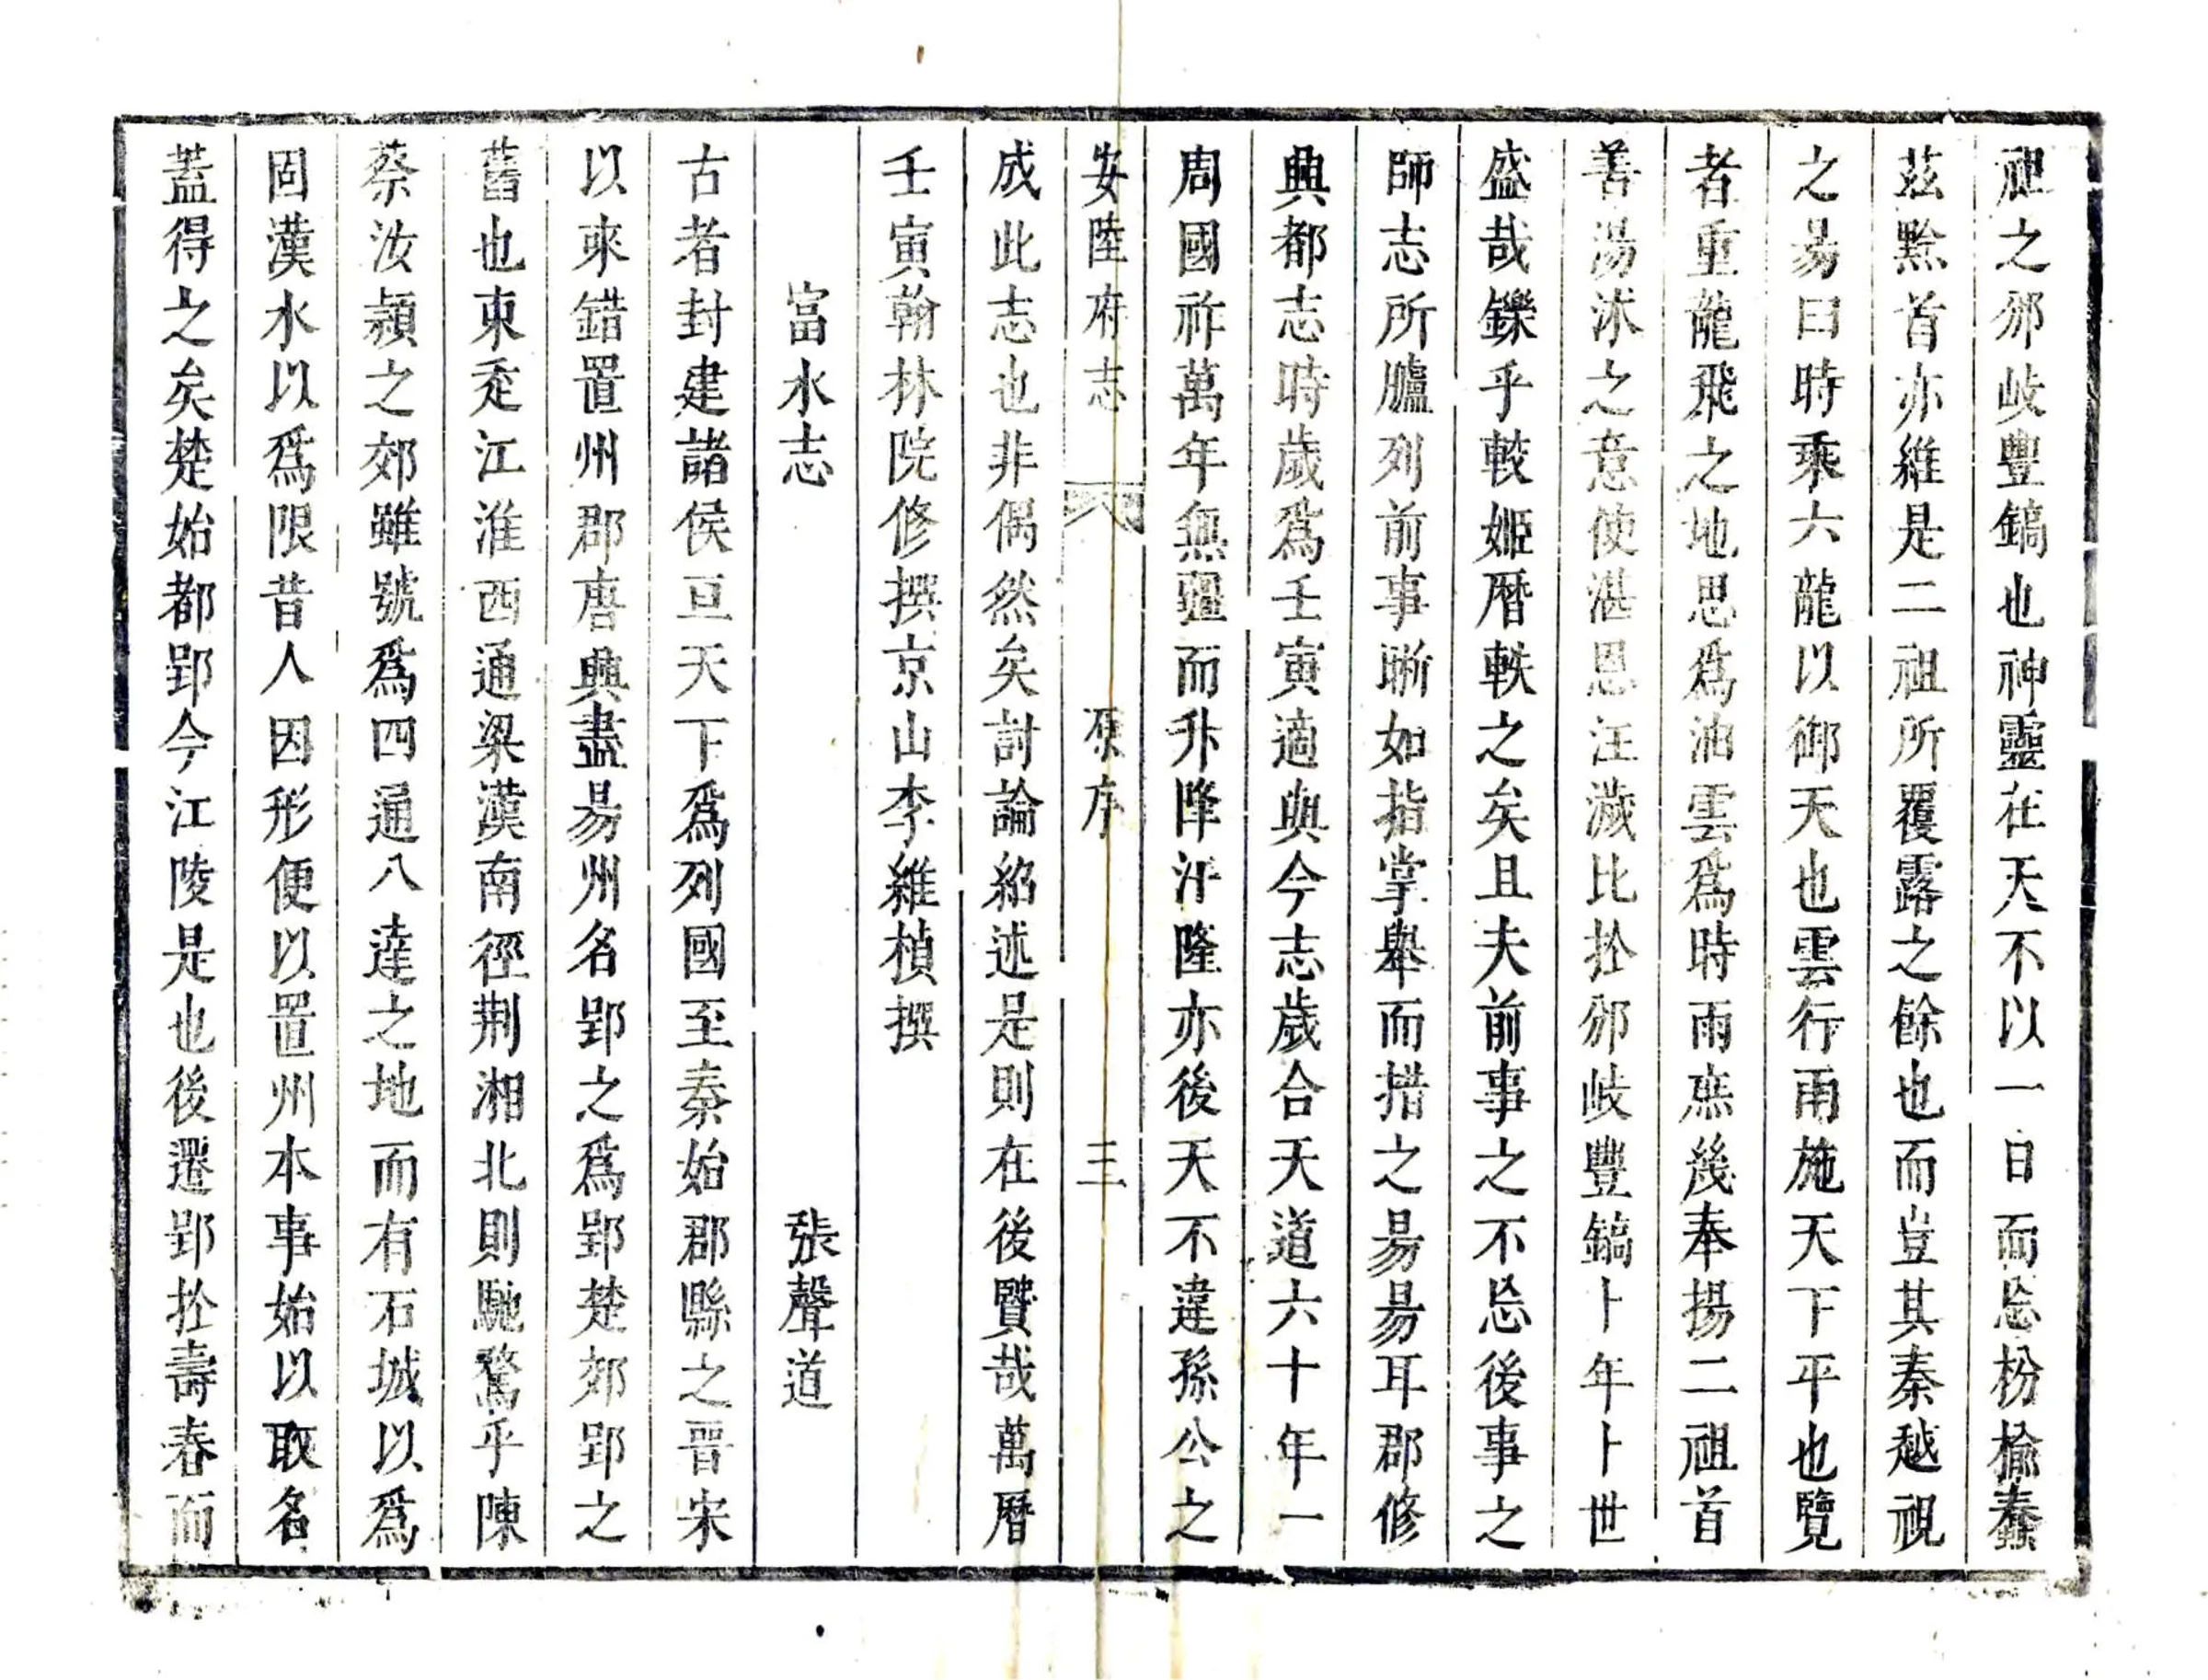 祖之邠岐豐鎬也神靈在天不以一日而忘枌榆蠢
茲黔首亦維是二祖所覆露之餘也而豈其秦越視
之易曰時乘六龍以御天也雲行雨施天下平也覽
者重龍飛之地思爲油雲爲時雨庶幾奉揚二祖首
善湯沐之意使湛恩汪濊比於邠岐豐鎬卜年卜世
盛哉鑠乎較姬曆軼之矣且夫前事之不忘後事之
師志所臚列前事晰如指掌舉而措之易易耳郡修
興都志時歲爲壬寅適與今志歲合天道六十年一
周國祚萬年無疆而升降汙隆亦後天不違孫公之
安陸府志 原序 三
成此志也非偶然矣討論紹述是則在後賢哉萬曆
壬寅翰林院修撰京山李維楨撰
富水志 張聲道
古者封建諸侯亘天下爲列國至秦始郡縣之晉宋
以來錯置州郡唐興盡易州名郢之爲郢楚郊郢之
舊也東走江淮西通梁漢南徑荆湘北則馳騖乎陳
蔡汝潁之郊雖號爲四通八達之地而有石城以爲
固漢水以爲限昔人因形便以置州本事始以取名
蓋得之矣楚始都郢今江陵是也後遷郢於壽春而